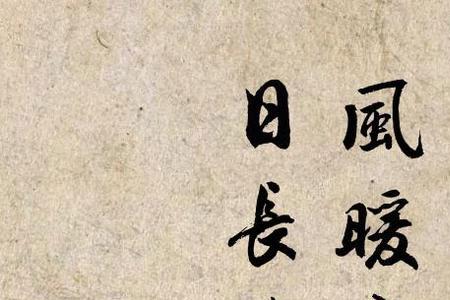 風暖
日長